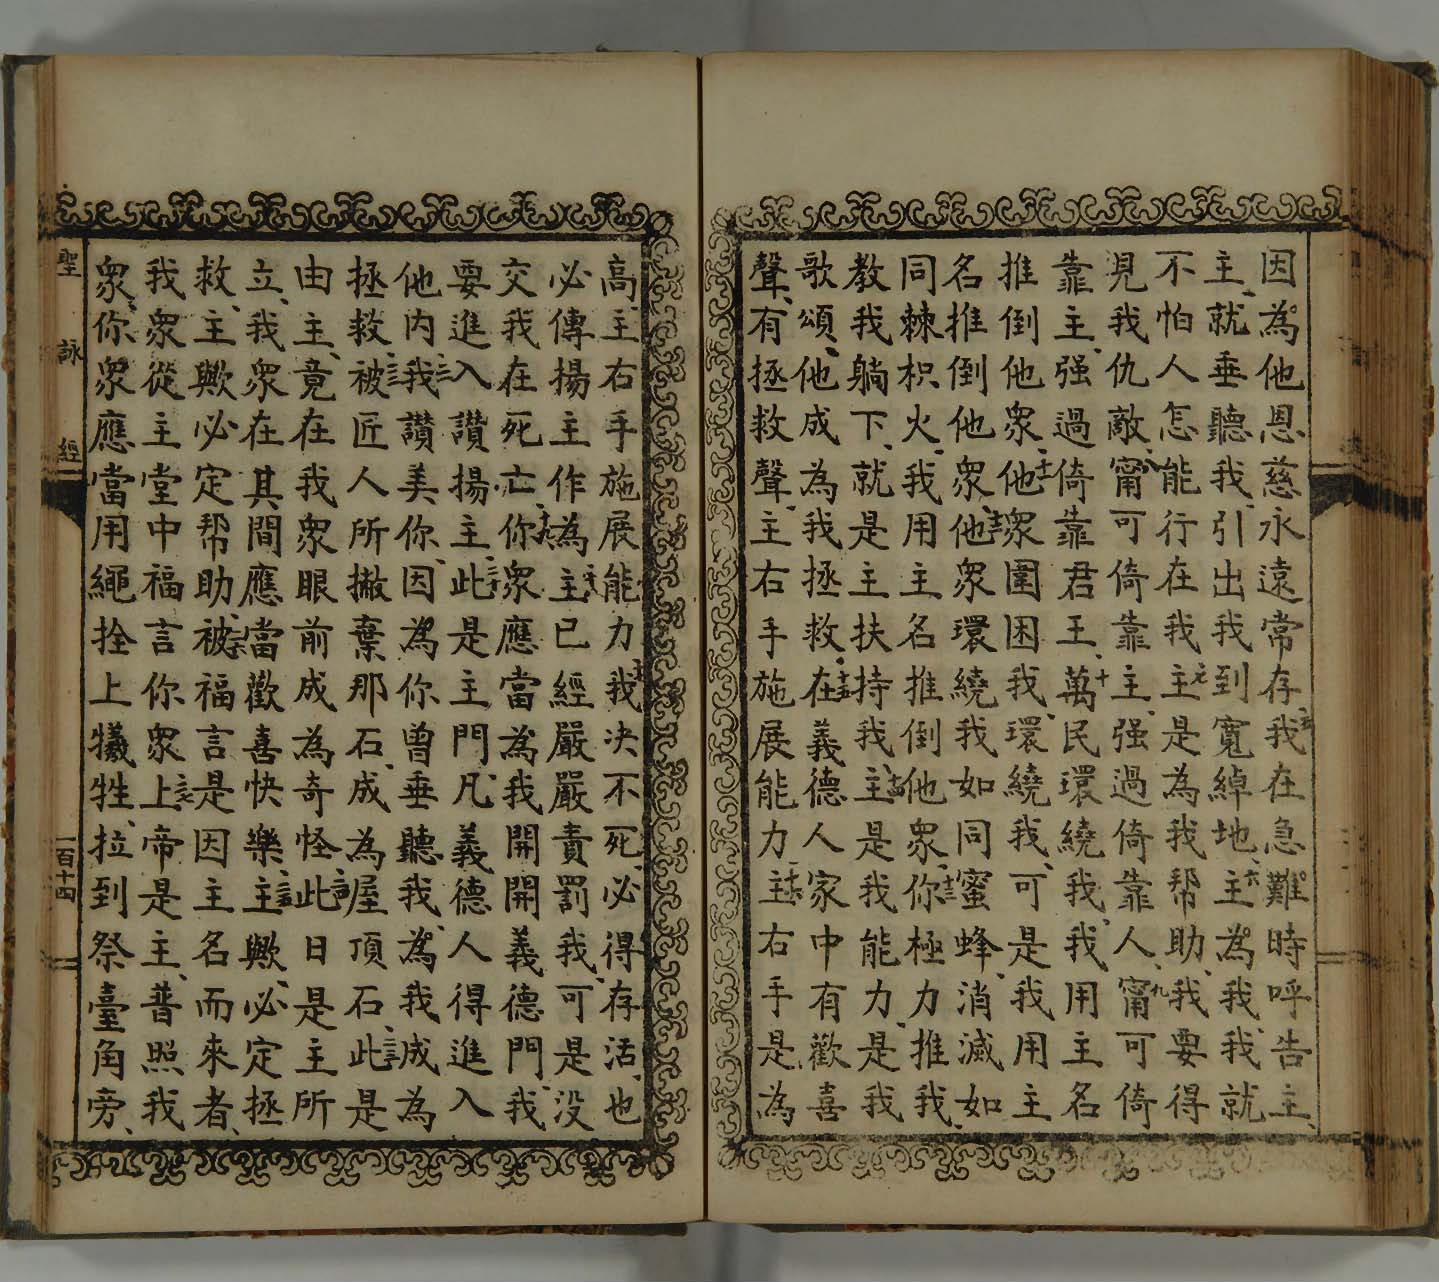 因為他恩慈永遠常存五我在急難時呼告主、
主、就垂聽我、引出我到寬綽地、六主為我、我就
不怕人怎能行在我七主是為我幫助、我要得
見我仇敵、八甯可倚靠主、强過倚靠人、九甯可倚
靠主、强過倚靠君王、十萬民環繞我、我用主名
推倒他衆、十一他衆圍困我、環繞我、可是我用主
名推倒他衆、十二他衆環繞我如同蜜蜂、消滅如
同棘枳火、我用主名推倒他衆、十三你極力推我、
教我躺下、就是主扶持我、十四主是我能力、是我
歌頌、他成為我拯救、十五在義德人家中有歡喜
聲、有拯救聲、主右手施展能力、十六主右手是為
高、主右手施展能力、十七我决不死、必得存活、也
必傳揚主作為、十八主已經嚴嚴責罰我、可是没
交我在死亡、十九你衆應當為我開開義德門、我
要進入讚揚主、二十此是主門、凡義德人得進入
他内、二一我讚美你、因為你曾垂聽我、為我成為
拯救、二二被匠人所撇棄那石、成為屋頂石、二三此是
由主、竟在我衆眼前成為奇怪、二四此日是主所
立、我衆在其間應當歡喜快樂、二五主歟、必定拯
救、主歟必定幇助、二六被福言是因主名而來者、
我衆從主堂中福言你衆、二七上帝是主、普照我
衆、你衆應當用繩拴上犧牲、拉到祭臺角旁、
聖詠經
一百十四